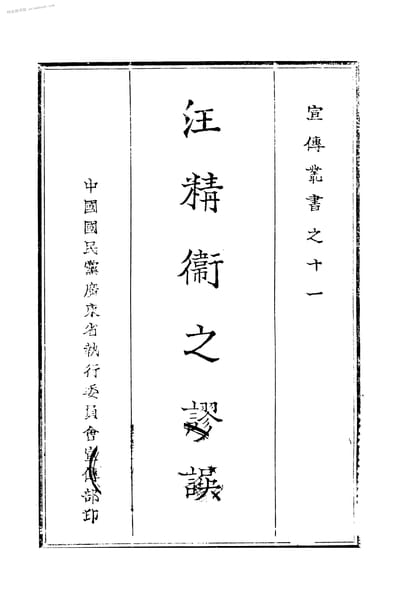 宣傳叢書之十一
汪精衞之謬誤
中國國民黨廣東省執行委員會宣傳部印